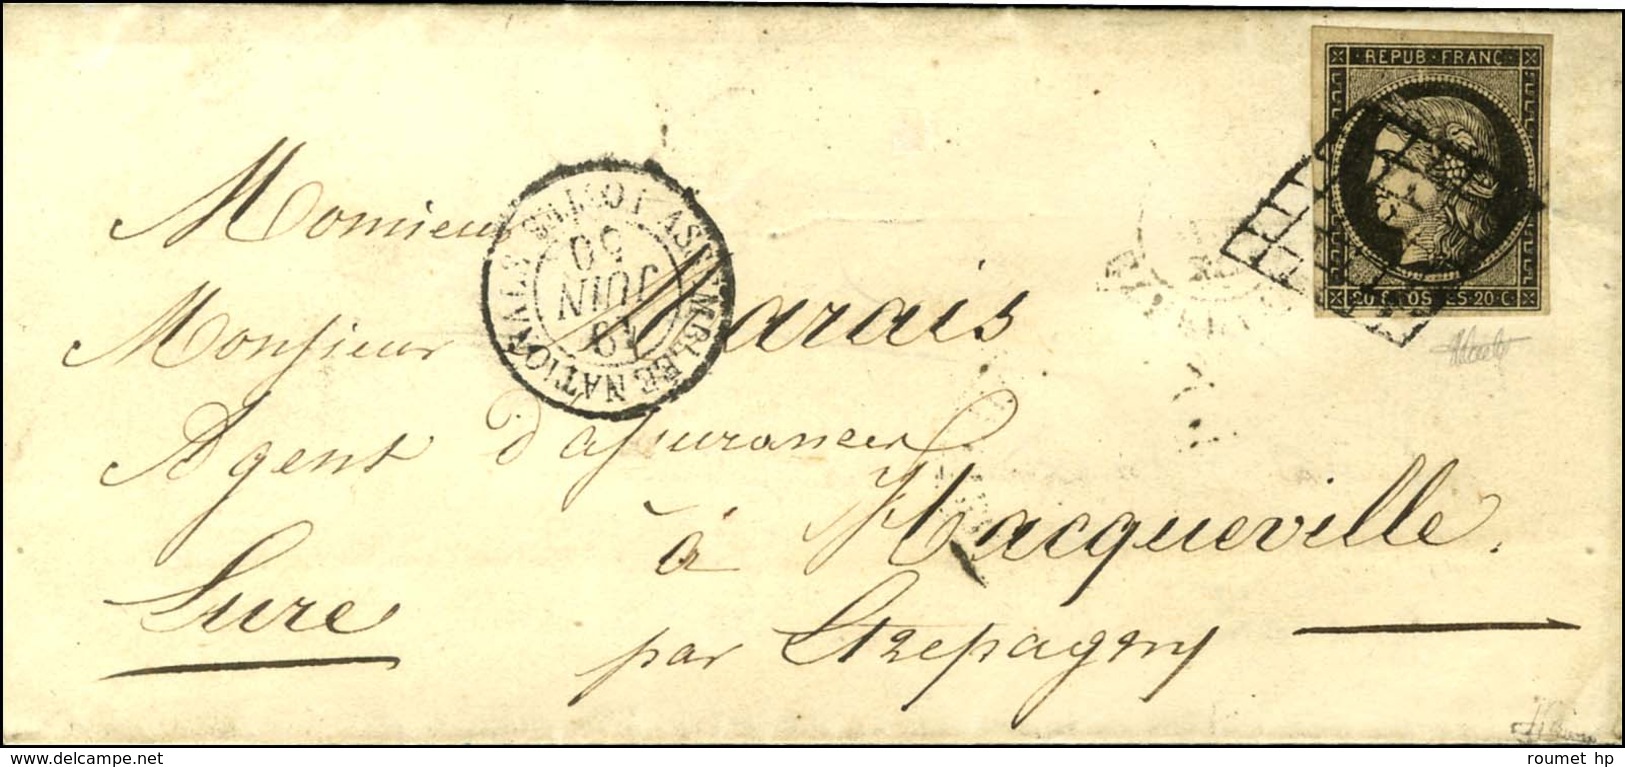 REPUB·FRANC·
20 C. POSTES 20 C.
Monsieur
Monsieur Marais
Agent d'assurances
à Hacqueville.
Eure
par Etrepagny
ASSEMBLÉE NATIONALE
19
JUIN
50
roumet hp